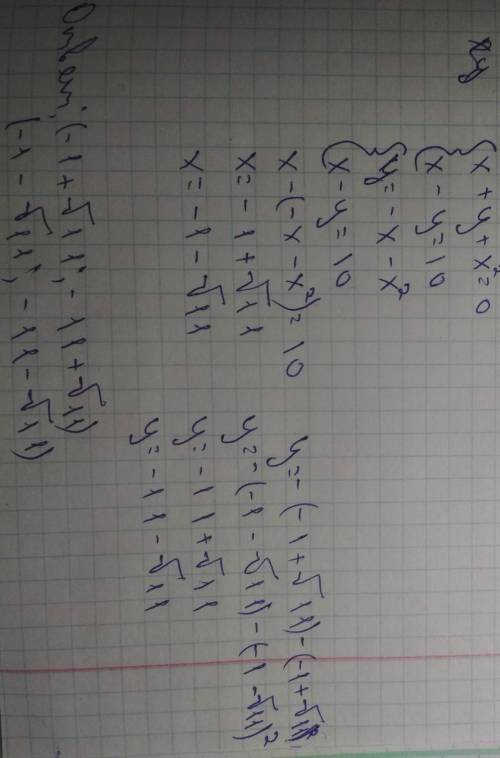 { x + y + x² = 0
{ x - y = 10
{ y = - x - x²
{ x - y = 10
x - (-x - x²) = 10
x = -1 + √11
x = -1 - √11
y = - (-1 + √11) - (-1 + √11)²
y = - (-1 - √11) - (-1 - √11)²
y = -11 + √11
y = -11 - √11
Ответ: (-1 + √11; -11 + √11)
(-1 - √11; -11 - √11)